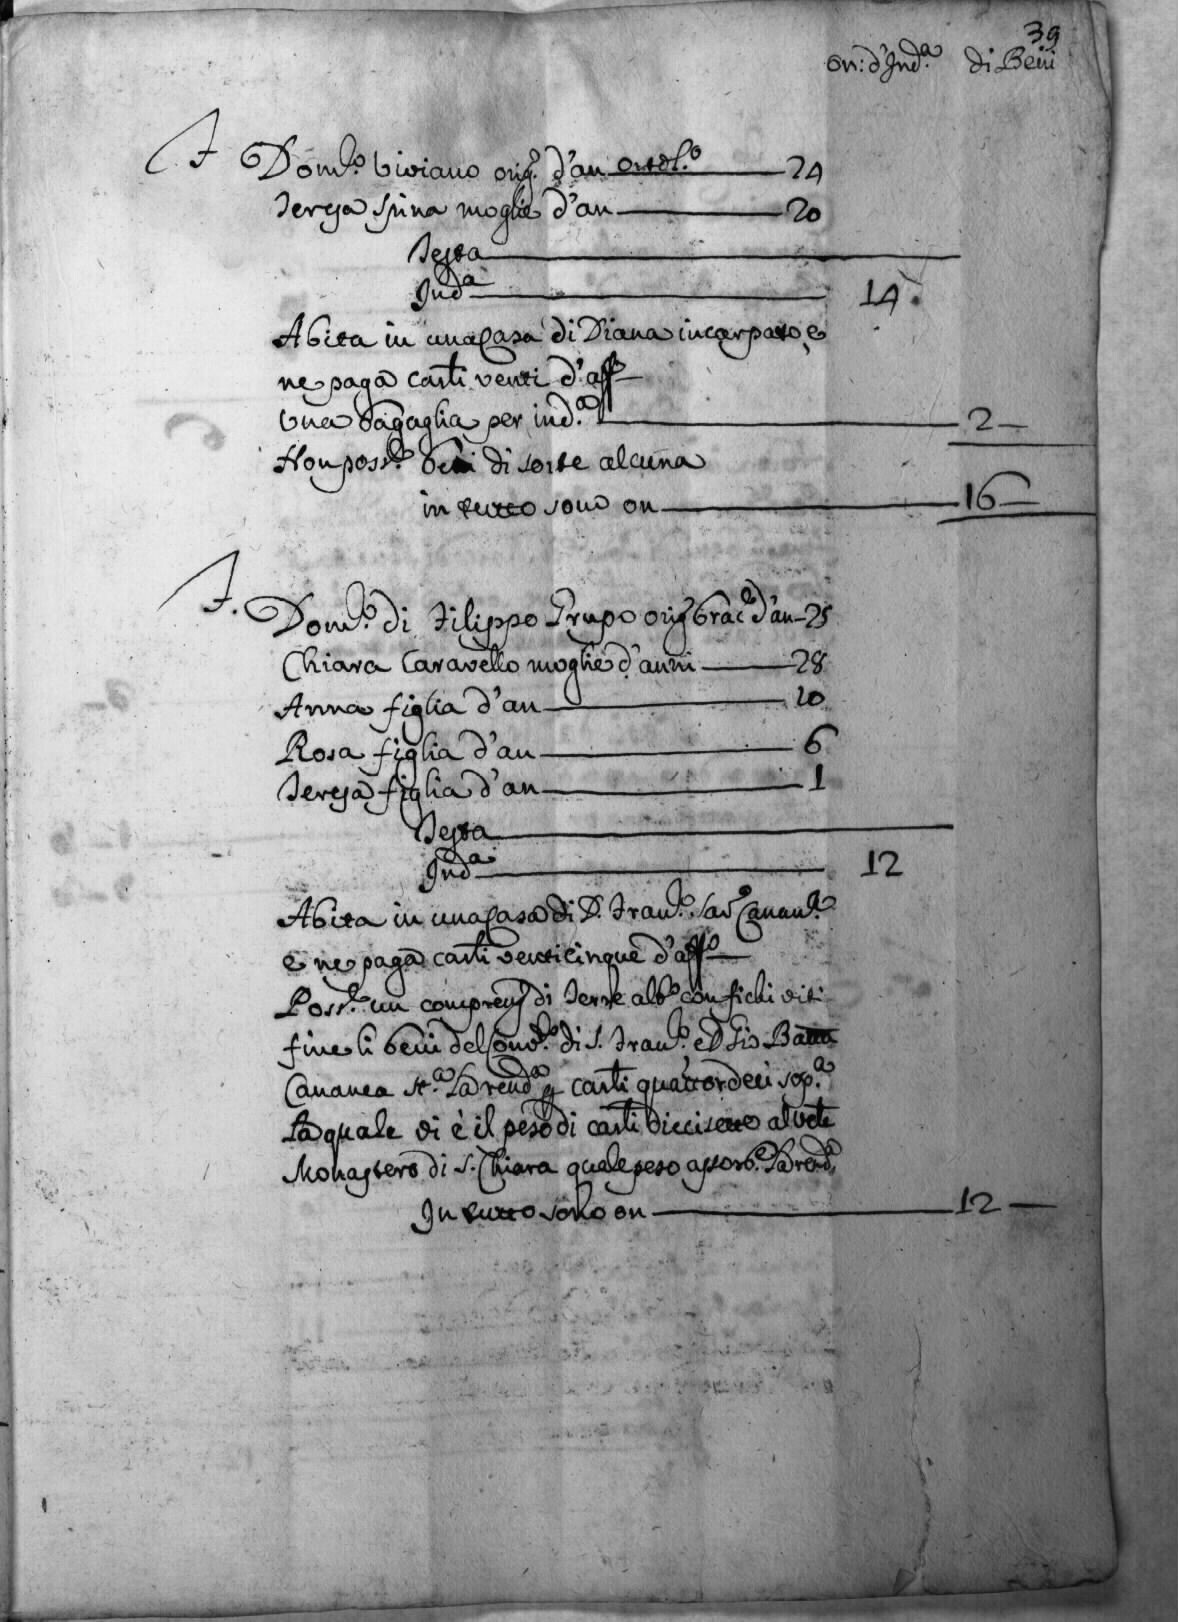 39
on: d'Ind.a di Beni
F Dom.co Viviano orig. d'an ortol.o 24
Teresa Spina moglie d'an 20
Testa
Ind.a 14
Abita in una Casa di Diana incarpato, e
ne paga carli venti d'aff.o
Una bagaglia per ind.a 2
Non poss.e beni di sorte alcuna
in tutto sono on 16
F. Dom.co di Filippo Grupo orig. brac.le d'an 25
Chiara Caravello moglie d'anni 28
Anna figlia d'an 10
Rosa figlia d'an 6
Teresa figlia d'an 1
Testa
Ind.a 12
Abita in una Casa di D. Fran.co Sav.o Canan.a
e ne paga carli venticinque d'aff.o
Poss.e un comprens. di Terre alb.o con fichi viti
fine li beni del Conv.to di S. Fran.co e D. Gio Batta
Cananea st.a la rend.a p carli quattordeci sop.a
La quale vi è il peso di carli diecisette al ven.le
Monastero di S. Chiara quale peso assorb.e la rend.a
In tutto sono on 12